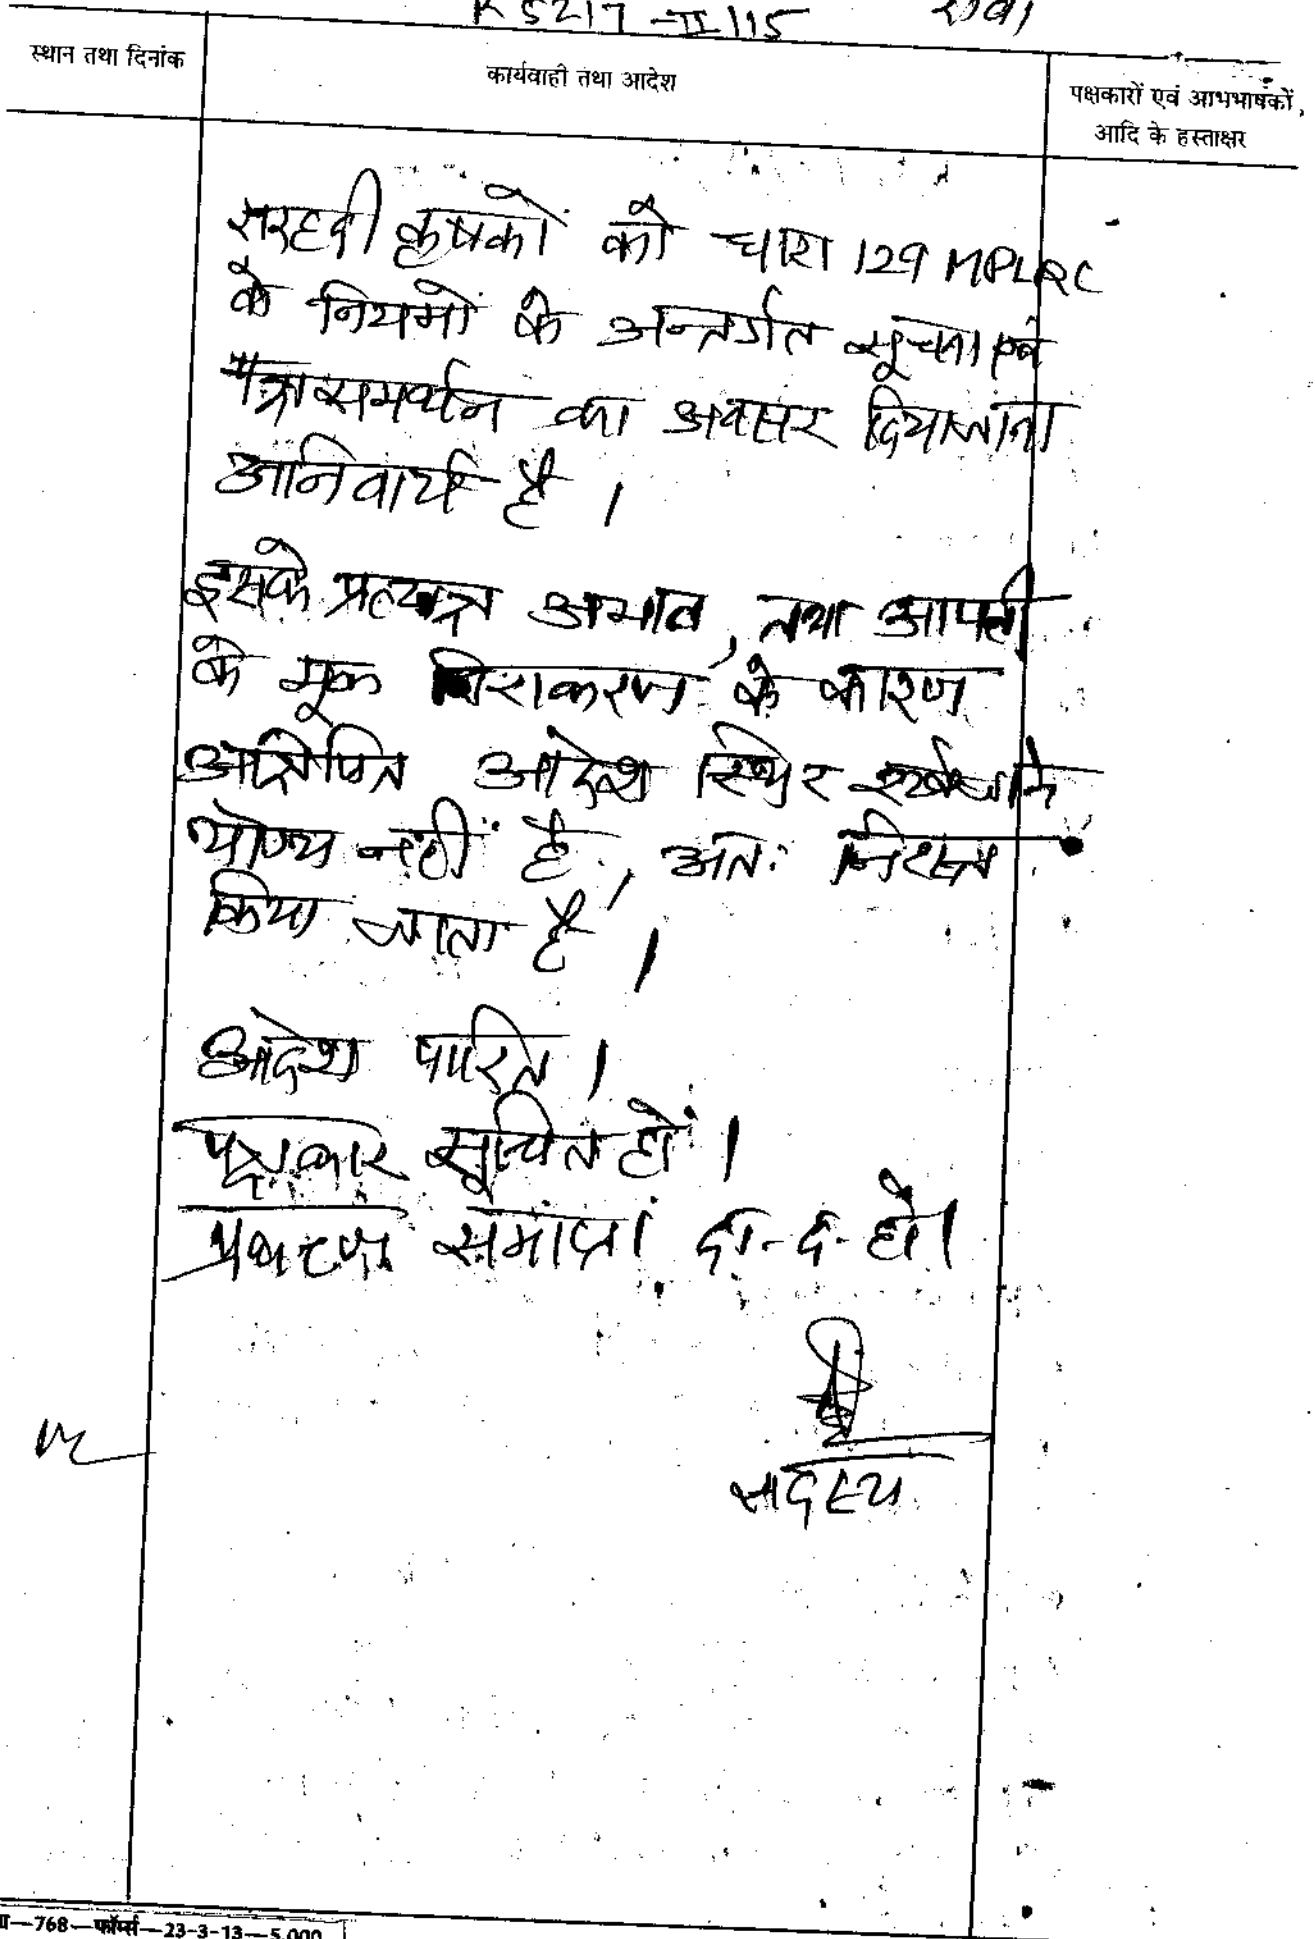 R 5217-II-115 रीवा
स्थान तथा दिनांक
कार्यवाही तथा आदेश
पक्षकारों एवं अभिभाषकों,
आदि के हस्ताक्षर
सरहदी कृषकों को धारा 129 MPLRC
के नियमों के अन्तर्गत सूचना एवं
पक्ष समर्थन का अवसर दिया जाना
अनिवार्य है ।
इसके प्रत्यक्ष अभाव, तथा आपत्ती
के मूक निराकरण के कारण
आक्षेपित आदेश स्थिर रखे जाने
योग्य नहीं है, अतः निरस्त
किया जाता है ।
आदेश पारित ।
पक्षकार सूचित हों ।
प्रकरण समाप्त। दा. द. हो।
सदस्य
—768—फॉर्म्स—23-3-13—5,000